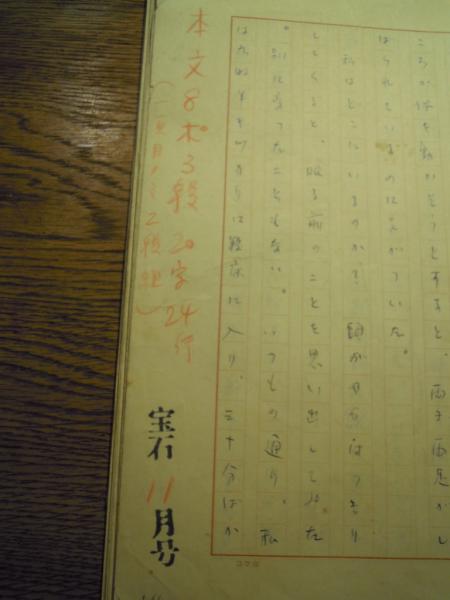 ころが体を動かそうとすると、両手両足がし
ばられているのに気がついた。
私はどこにいるのか? 頭がややはっきり
してくると、眠る前のことを思い出してみた
。別に変ったこともない。いつもの通り。私
は九時半きっかりに寝床に入り、三十分ばか
本文8ポ3段20字24行
(一頁目ノミ2段組)
宝石11月号
コクヨ